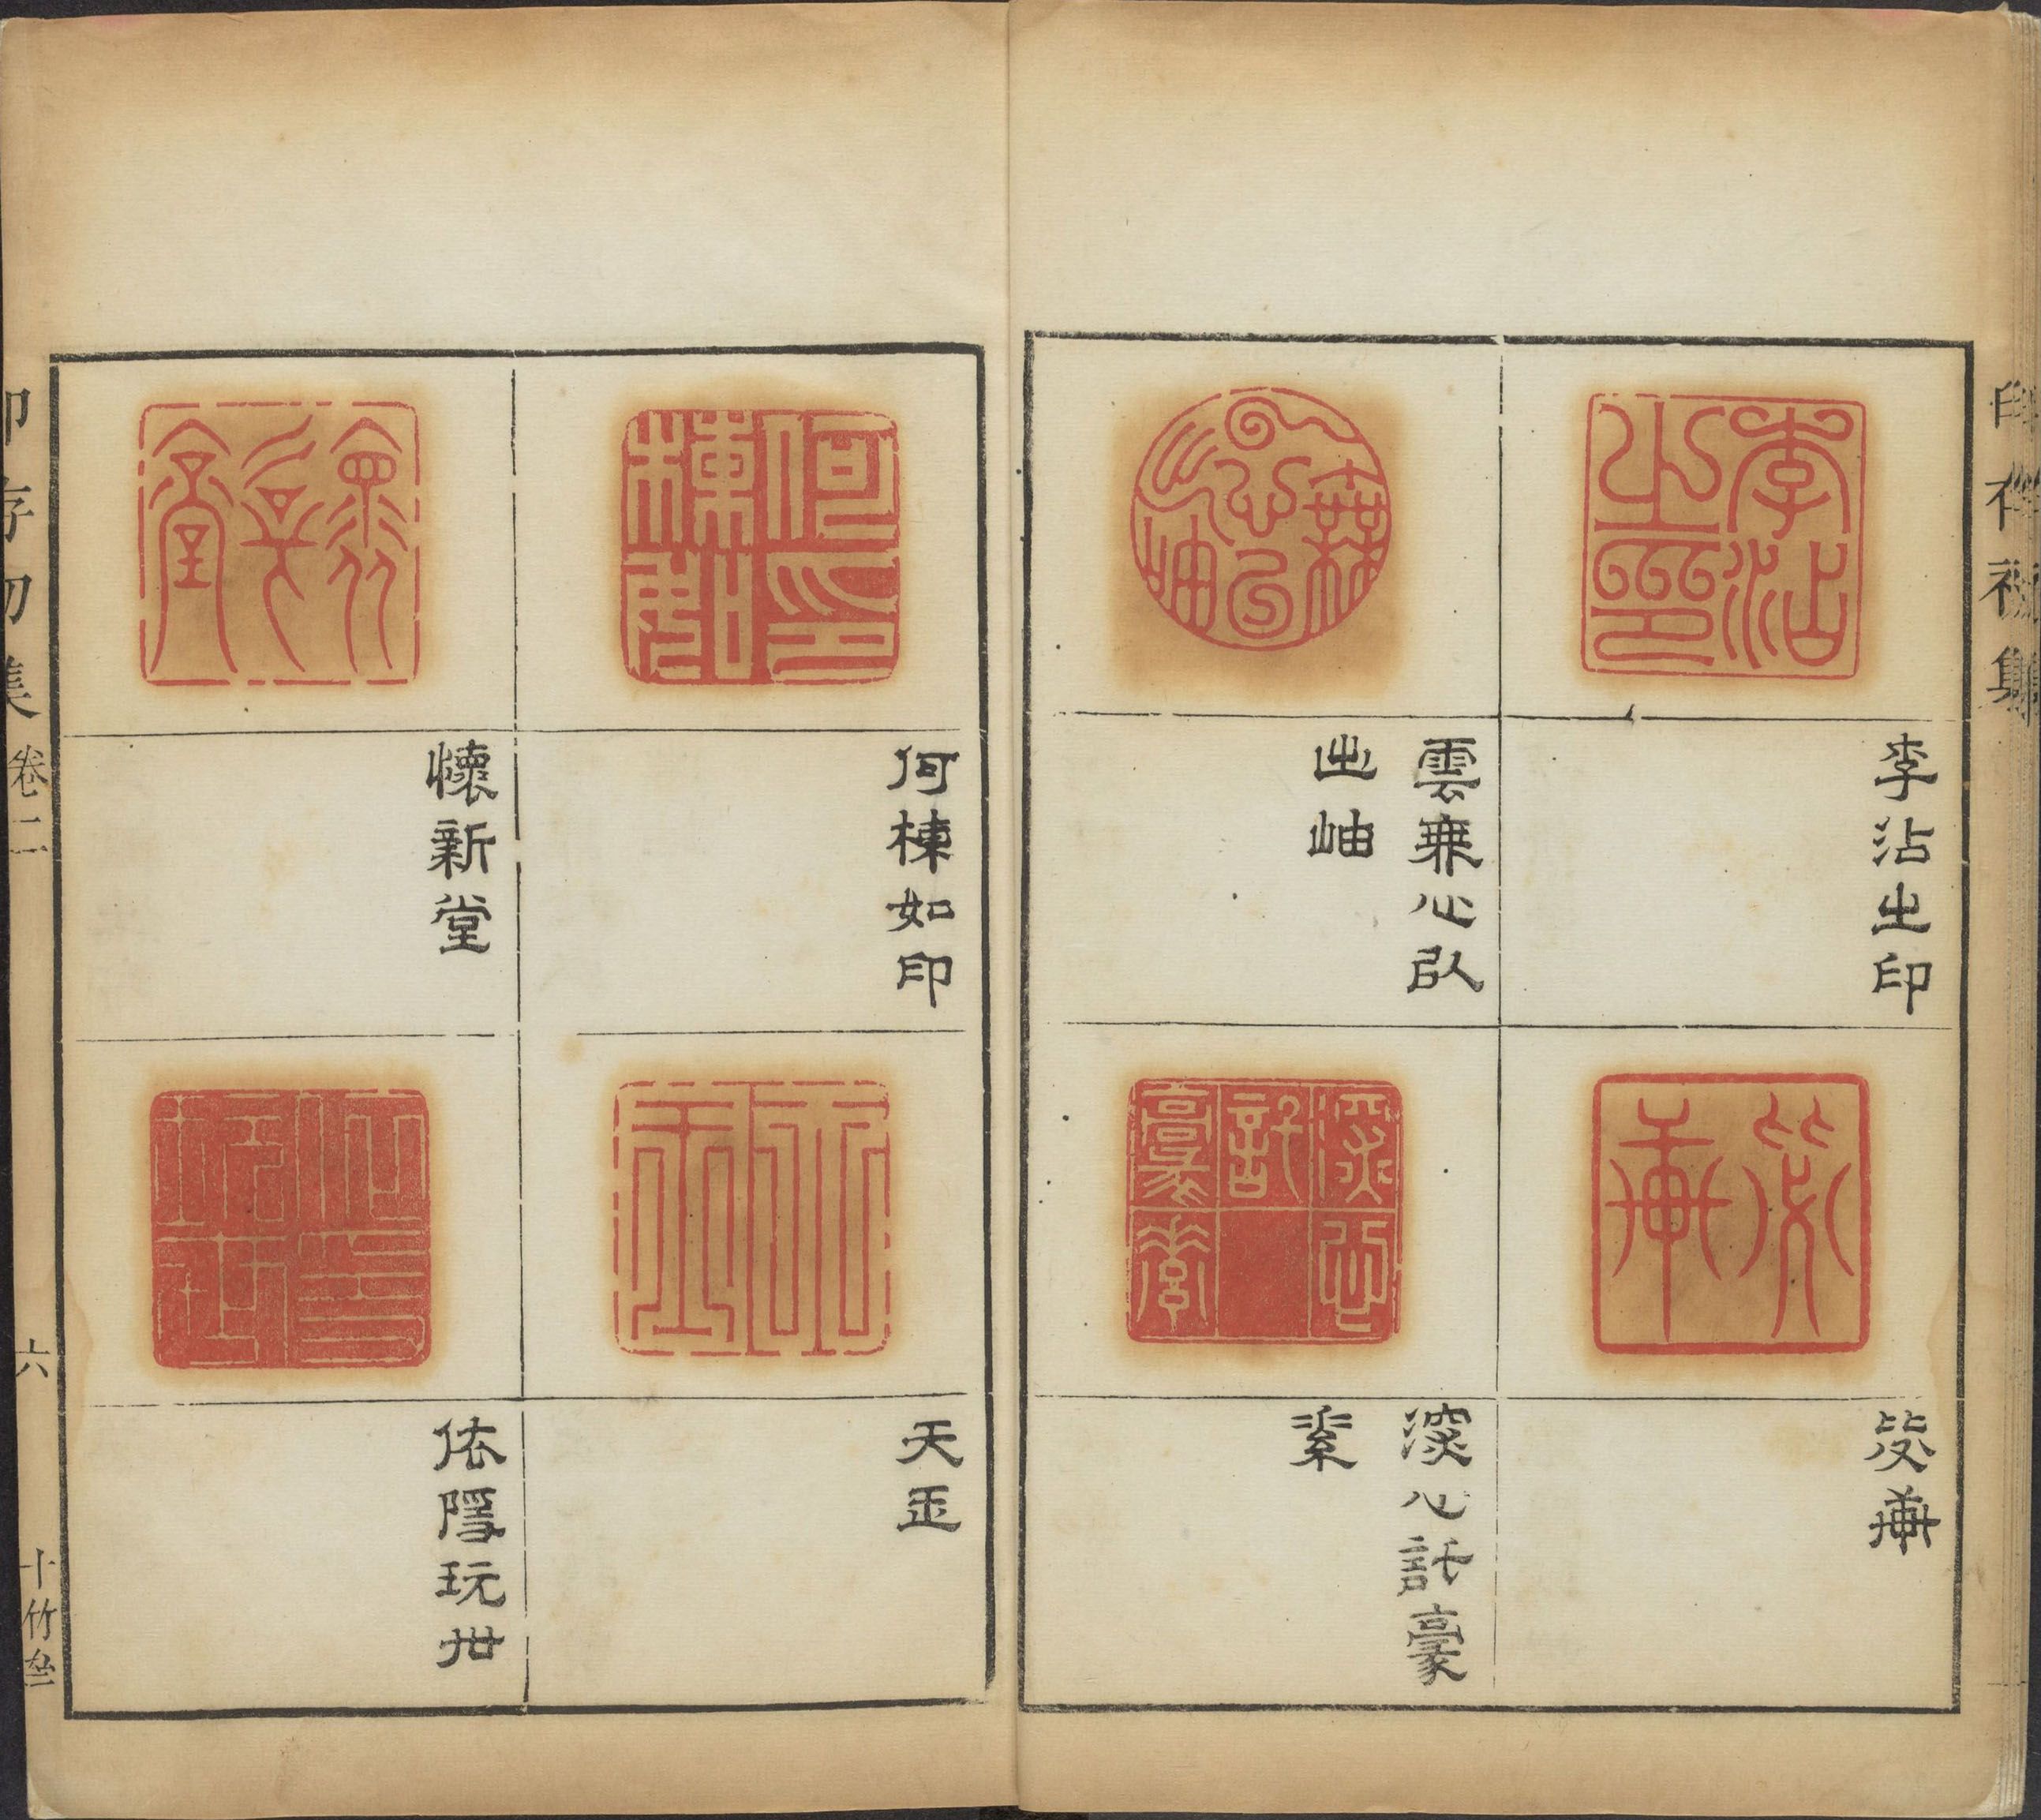 印存初集
李沾㞢印
雲無心以
出岫
笅𦾔
深心託豪
素
何棟如印
懷新堂
天玉
依隱玩世
印存初集 卷二 六 十竹斋